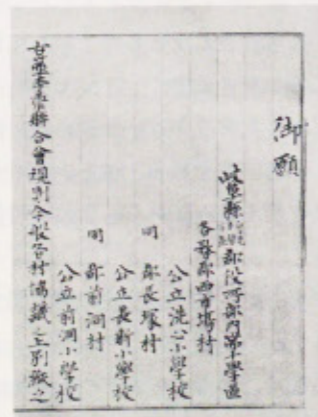 御願
岐阜縣 郡役所部内第十學區
各務郡西市場村
公立洗心小學校
同 郡長塚村
公立長新小學校
同 郡前洞村
公立前洞小學校
聯合會規則今般各村協議之上別紙之